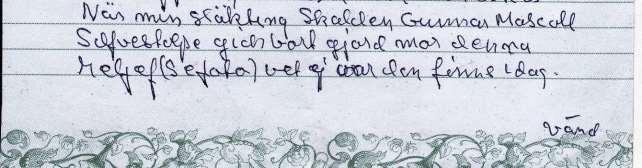 När min släkting Skalden Gunnar Mascoll
Silfverstolpe gick bort gjord mor denna
relief (Se foto) vet ej var den finns idag.
vänd